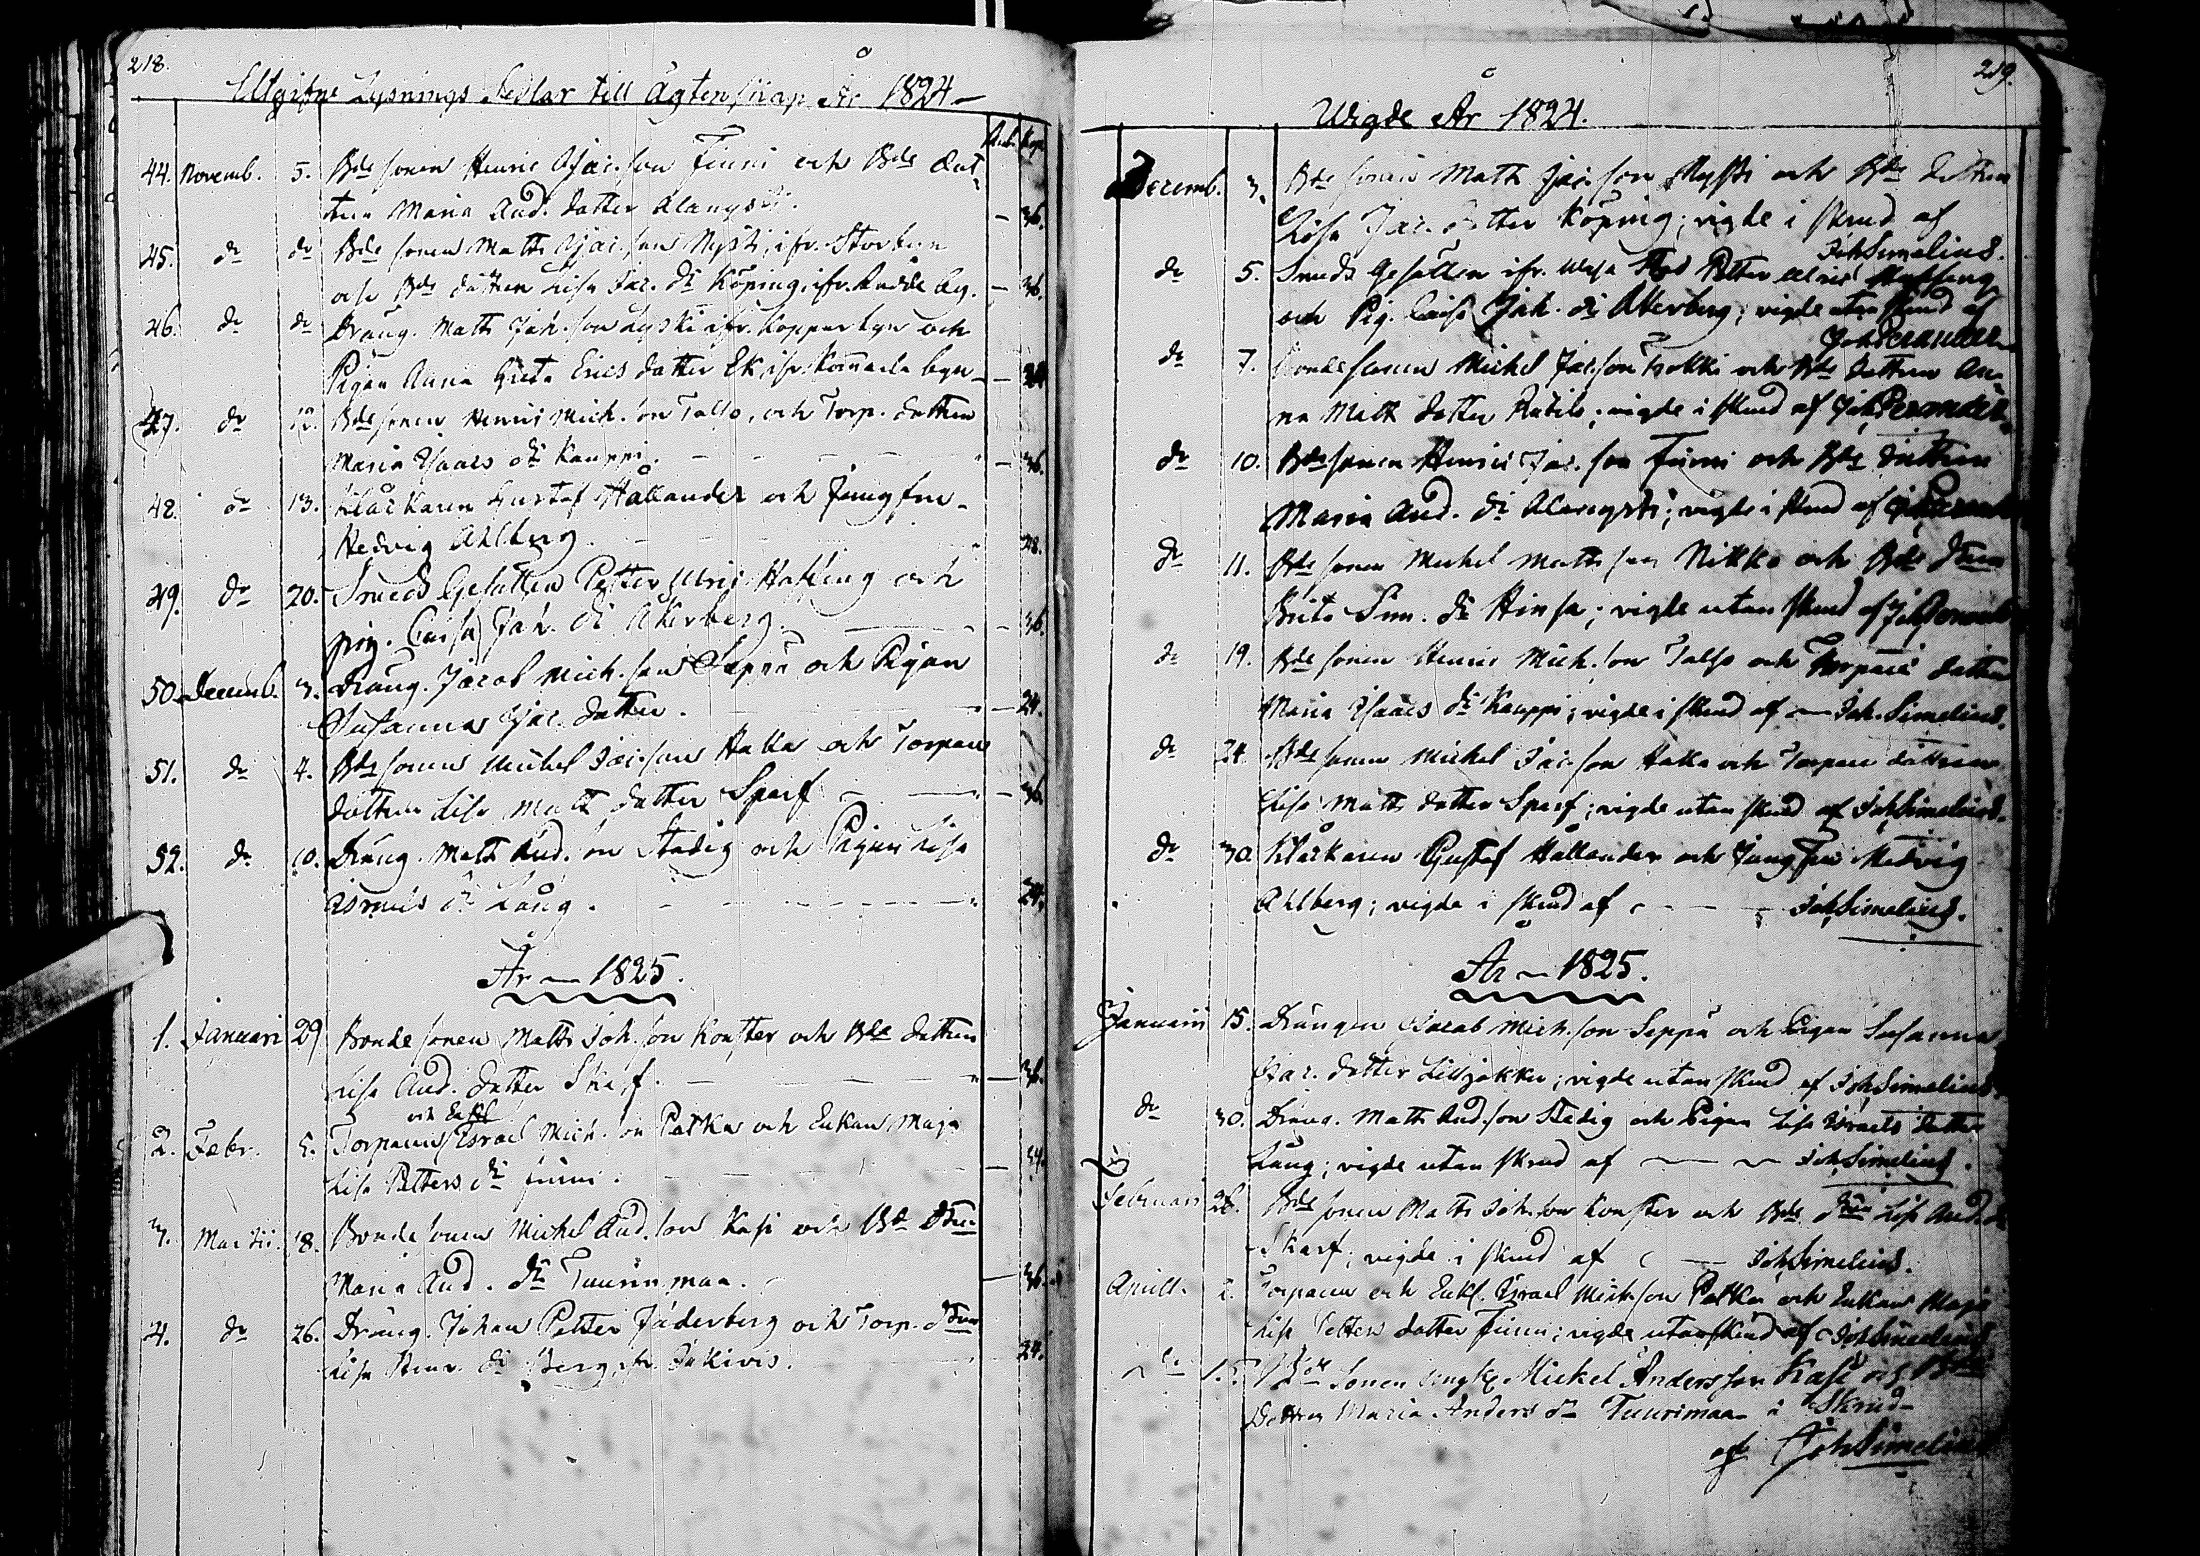 218.
Utgifne Lysnings Sedlar till Ägtenskap År 1824
Rub. Kop.
44. Novemb. 5. Bde sonen Henric Isac.son Finni och Bde dot-
tren Maria And. dotter Alangysti. 36.
45. do do Bde sonen Matts Isac.son Nysti, ifr. Storbyn
och Bde dottren Lisa Jac. dr Köping, ifr. Andde by. 36.
46. do do Dräng. Matts Joh.son Lyski ifr. Kopparbyn och
Pigan Anna Greta Erics dotter Ek, ifr. byn 24
47. do 12. Bde sonen Henric Mich.son Talso, och Torp. dottren
Maria Isaacs dr Kauppi. 36.
48. do 13. Klåckaren Gustaf Hållander och Jungfru
Hedvig Ahlberg. 48.
49. do 20. Smeds Gesällen Petter Ulric och
pig. Caisa Joh. dr Åkerberg. 36.
50. Decemb. 3. Dräng. Jacob Mich.son Seppä och Pigan
Susanna Jac. dotter. 24.
51. do 4. Bde sonen Michel Jac.son Hakka och Torpare
dottren Lisa Matts dotter Sparf 36
52. do 10. Dräng. Matts And.son Stadig och Pigan Lisa
Israels dr Lång. 24.
År 1825.
1. Januari 29 Bonde sonen Matts Joh.son Konster och Bde dottren
Lisa And. dotter Skarf. 36.
och Enkl.
2. Febr. 5. Torparen Israel Mich.son Patka och Enkan Maja
Lisa Petters dr Finni. 24.
3. Martii. 18. Bonde sonen Michel And.son Kasi och Bde dttren
Maria And. dr Tuurinmaa. 36.
4. do 26. Dräng. Johan Petter Jäderberg och Torp. dttren
Lisa Henr. dr Berg, ifr. 24.
219.
Wigde År 1824.
Decemb. 3. Bde sonen Matts Jac.son Nysti och Bde dottren
Lisa Jac. dotter Köping; vigde i skrud af
Joh Simelius.
do 5. Smeds Gesällen ifr. Petter Ulric
och Pig. Caisa Joh. dr Åkerberg; vigde utan skrud af
Joh Perander
do 7. Bonde sonen Michel Jac.son och Bde dottren An-
na Matts dotter; vigde i skrud af Joh Perander
do 10. Bde sonen Henric Jac.son Finni och Bde dottren
Maria And. dr Alangysti; vigde i skrud af
do 11. Bde sonen Michel Matts son Nikko och Bde dttren
Brita Sim. dr Hinsa; vigde utan skrud af
do 19. Bde sonen Henric Mich.son Talso och Torpare dotter
Maria Isaacs dr Kauppi; vigde i skrud af Joh. Simelius.
do 24. Bde sonen Michel Jac.son Hakka och Torpare dottren
Lisa Matts dotter Sparf; vigde utan skrud af Joh Simelius.
do 30 Klåckaren Gustaf Hållander och Jungfru Hedvig
Ahlberg; vigde i skrud af Joh Simelius.
År 1825.
Januarii 15. Drängen Jacob Mich.son Seppä och Pigan Susanna
Jac. dotter Lilljakku; vigde utan skrud af Joh Simelius.
do 30. Dräng. Matts And.son Stadig och Pigan Lisa Israels dotter
Lång; vigde utan skrud af Joh Simelius.
Februari 26. Bde sonen Matts Joh.son Konster och Bde dttren Lisa And. dr
Skarf; vigde i skrud af Joh Simelius.
Aprill. 2. Torparen och Enkl. Israel Mich.son Patka och Enkan Maja
Lisa Petters dotter Finni; vigde utan skrud af Joh Simelius
Bde Sonen Michel Andersson Kasi och Bde
Dottren Maria Anders dr Tuurimaa i Skrud
af Joh Simelius